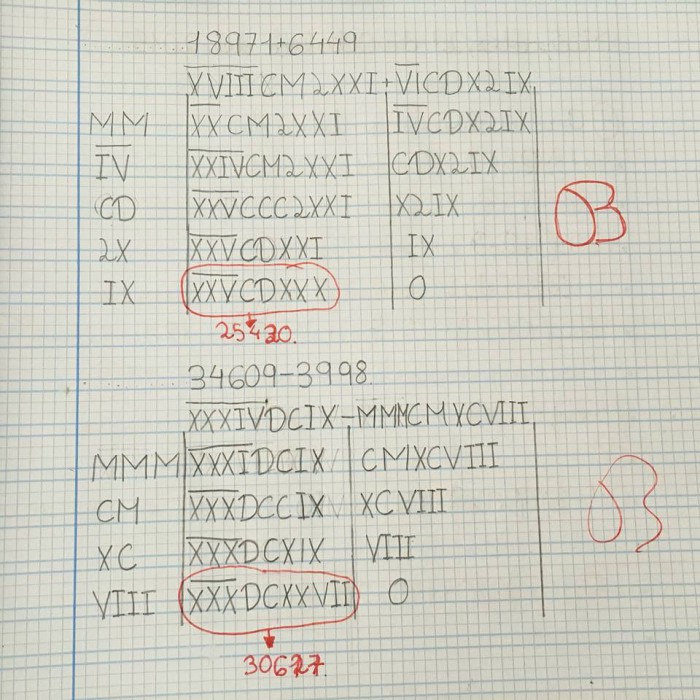 18971+6449
X̅V̅I̅I̅I̅CM2XXI+V̅I̅CDX2IX
MM X̅X̅CM2XXI I̅V̅CDX2IX
I̅V̅ X̅X̅I̅V̅CM2XXI CDX2IX
CD X̅X̅V̅CCC2XXI X2IX
2X X̅X̅V̅CDXXI IX
IX X̅X̅V̅CDXXX 0
25420.
34609-3998
X̅X̅X̅I̅V̅DCIX-MMMCMXCVIII
MMM X̅X̅X̅I̅DCIX CMXCVIII
CM X̅X̅X̅DCCIX XCVIII
XC X̅X̅X̅DCXIX VIII
VIII X̅X̅X̅DCXXVII 0
30627.